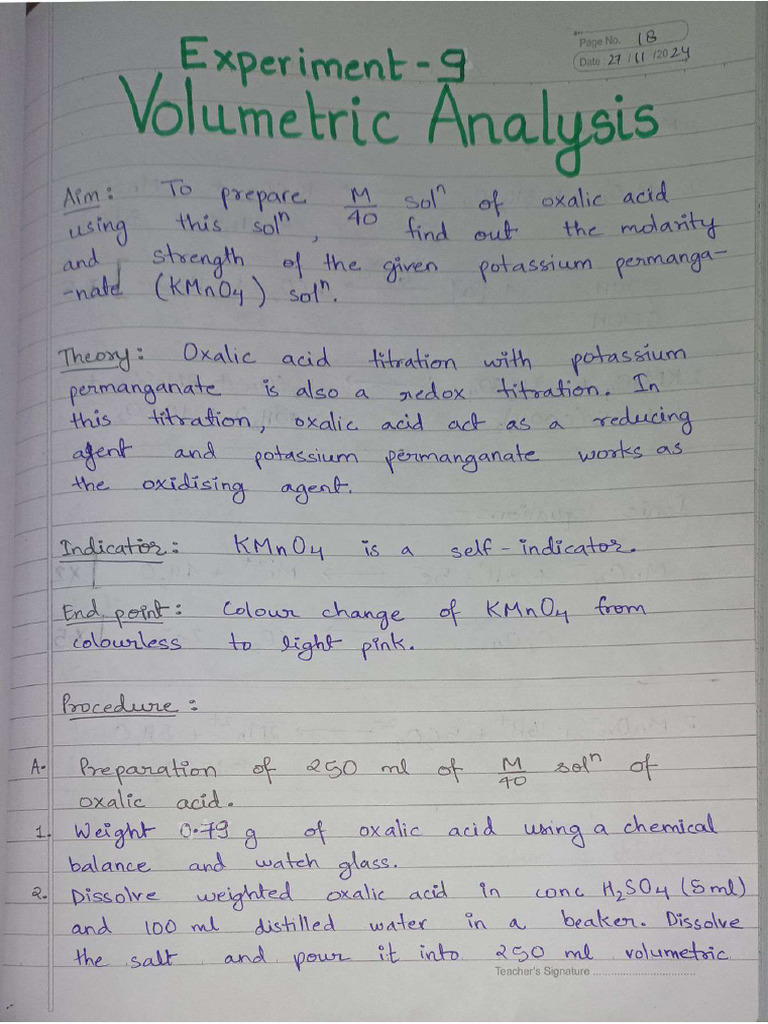 Page No. 18
Date: 27/11/2024
Experiment-9
Volumetric Analysis
Aim: To prepare M/40 solⁿ of oxalic acid
using this solⁿ, find out the molarity
and strength of the given potassium permanga-
-nate (KMnO4) solⁿ.
Theory: Oxalic acid titration with potassium
permanganate is also a redox titration. In
this titration, oxalic acid act as a reducing
agent and potassium permanganate works as
the oxidising agent.
Indicator: KMnO4 is a self-indicator.
End point: Colour change of KMnO4 from
colourless to light pink.
Procedure:
A. Preparation of 250 ml of M/40 solⁿ of
oxalic acid.
1. Weight 0.79 g of oxalic acid using a chemical
balance and watch glass.
2. Dissolve weighted oxalic acid in conc H2SO4 (5ml)
and 100 ml distilled water in a beaker. Dissolve
the salt and pour it into 250 ml volumetric
Teacher's Signature